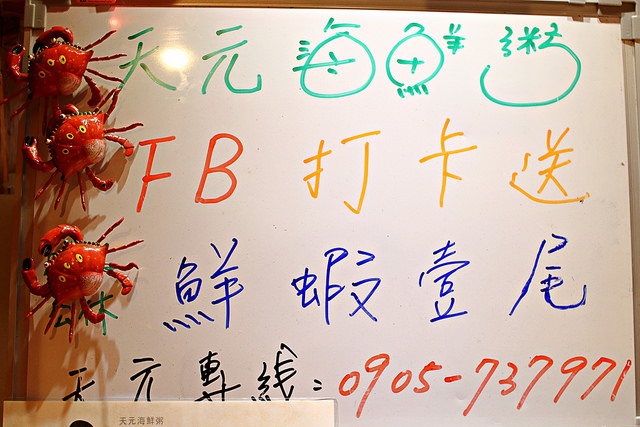 天元海鮮粥
FB打卡送
鮮蝦壹尾
天元專線:0905-737971
天元海鮮粥